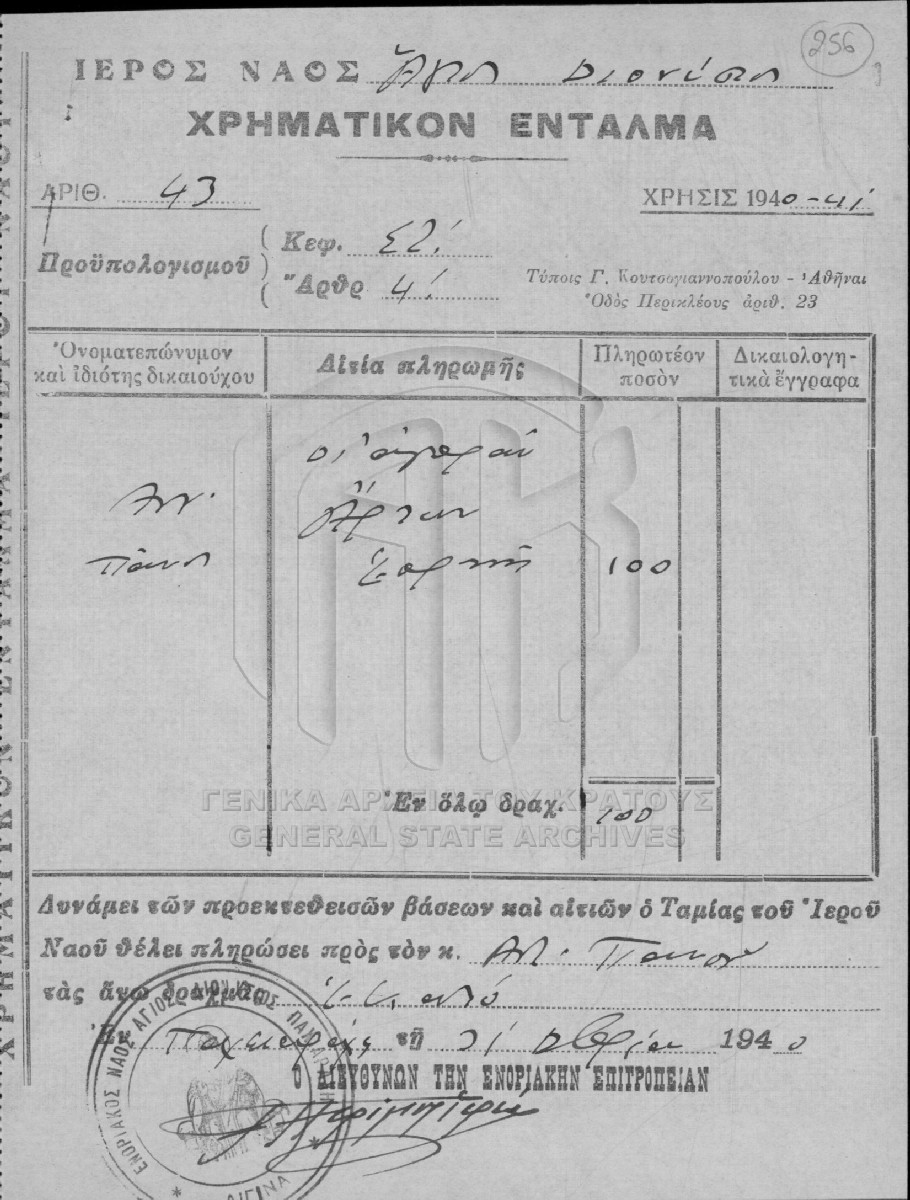 256
ΙΕΡΟΣ ΝΑΟΣ Ἁγίου Διονυσίου
ΧΡΗΜΑΤΙΚΟΝ ΕΝΤΑΛΜΑ
ΑΡΙΘ. 43
ΧΡΗΣΙΣ 1940-41
Προϋπολογισμοῦ
Κεφ. Στ'.
Ἄρθρ 4'.
Τύποις Γ. Κουτσογιαννοπούλου - Ἀθῆναι
Ὁδὸς Περικλέους ἀριθ. 23
Ὀνοματεπώνυμον καὶ ἰδιότης δικαιούχου
Αἰτία πληρωμῆς
Πληρωτέον ποσὸν
Δικαιολογητικὰ ἔγγραφα
Ἄρτων
100
Ἐν ὅλῳ δραχ. 100
ΓΕΝΙΚΑ ΑΡΧΕΙΑ ΤΟΥ ΚΡΑΤΟΥΣ
GENERAL STATE ARCHIVES
Δυνάμει τῶν προεκτεθεισῶν βάσεων καὶ αἰτιῶν ὁ Ταμίας τοῦ Ἱεροῦ
Ναοῦ θέλει πληρώσει πρὸς τὸν κ.
τὰς ἄνω δραχμὰς ἑκατό
Ἐν τῇ 31 1940
Ο ΔΙΕΥΘΥΝΩΝ ΤΗΝ ΕΝΟΡΙΑΚΗΝ ΕΠΙΤΡΟΠΕΙΑΝ
ΕΝΟΡΙΑΚΟΣ ΝΑΟΣ ΑΓΙΟΣ ΔΙΟΝΥΣΙΟΣ
ΑΙΓΙΝΑ
ΧΡΗΜΑΤΙΚΟΝ ΕΝΤΑΛΜΑ